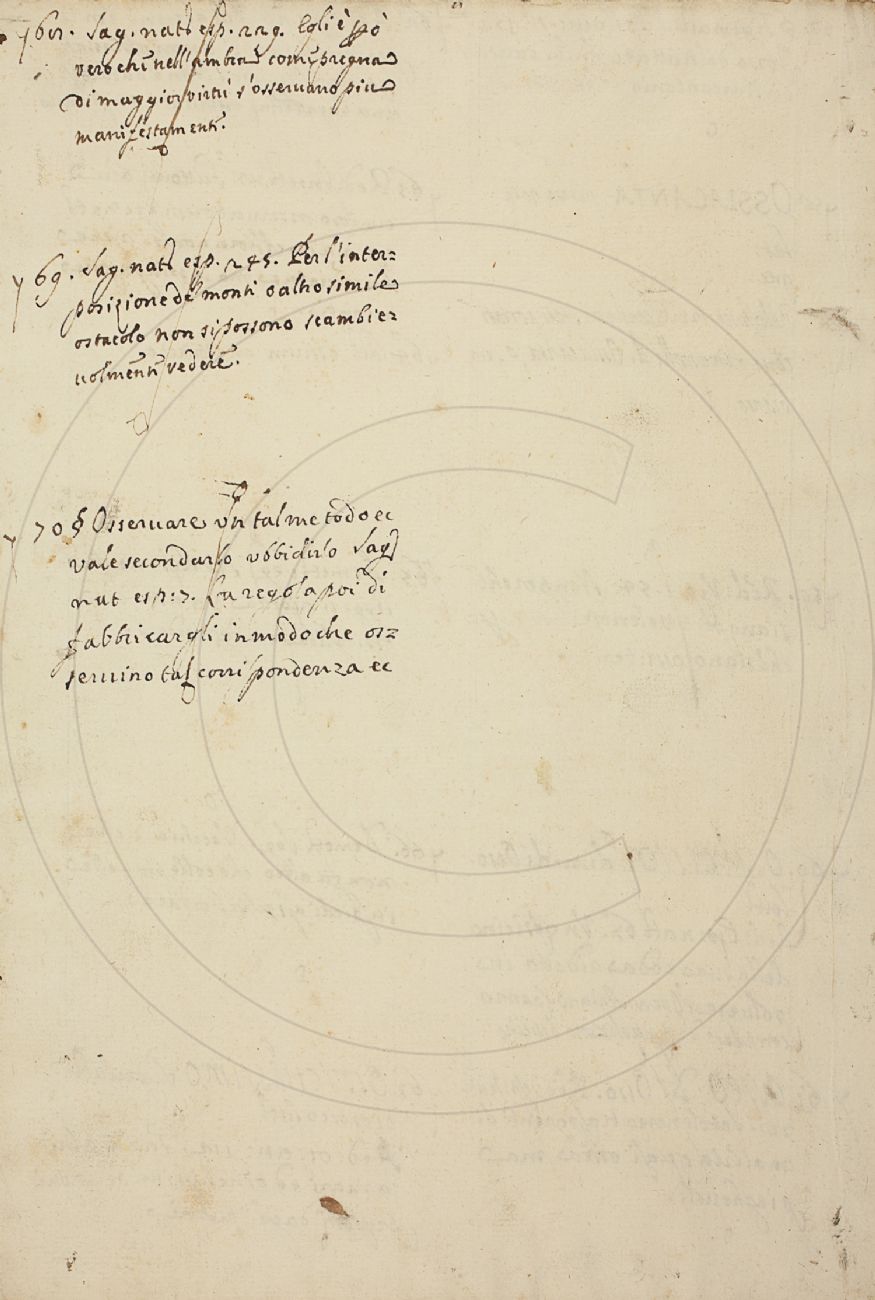 68. Sag. nat. esp. 229. Egli è pò
vero che nell'ambra come pregna
di maggior virtù s'osservano più
manifestamente.
69. Sag. nat. esp. 245. Per l'inter=
posizione de' monti o altro simile
ostacolo non si possono scambie=
volmente vedere.
70 § Osservare un tal metodo ec
vale secondarlo ubbidirlo Sag
nat esp: 7. La regola poi di
fabbricargli in modo che os=
servino tal corrispondenza ec